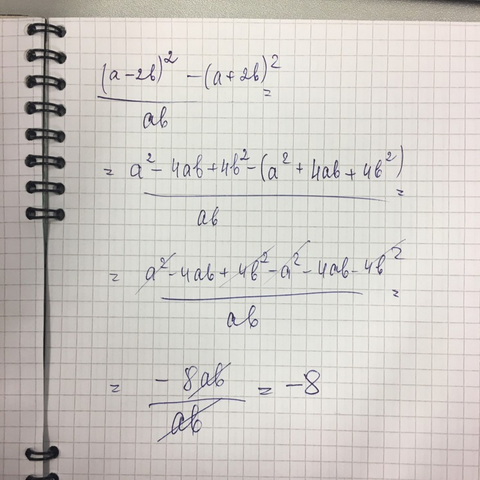 (a-2b)² - (a+2b)² =
ab
= a² - 4ab + 4b² - (a² + 4ab + 4b²) =
ab
= a² - 4ab + 4b² - a² - 4ab - 4b² =
ab
= -8ab = -8
ab